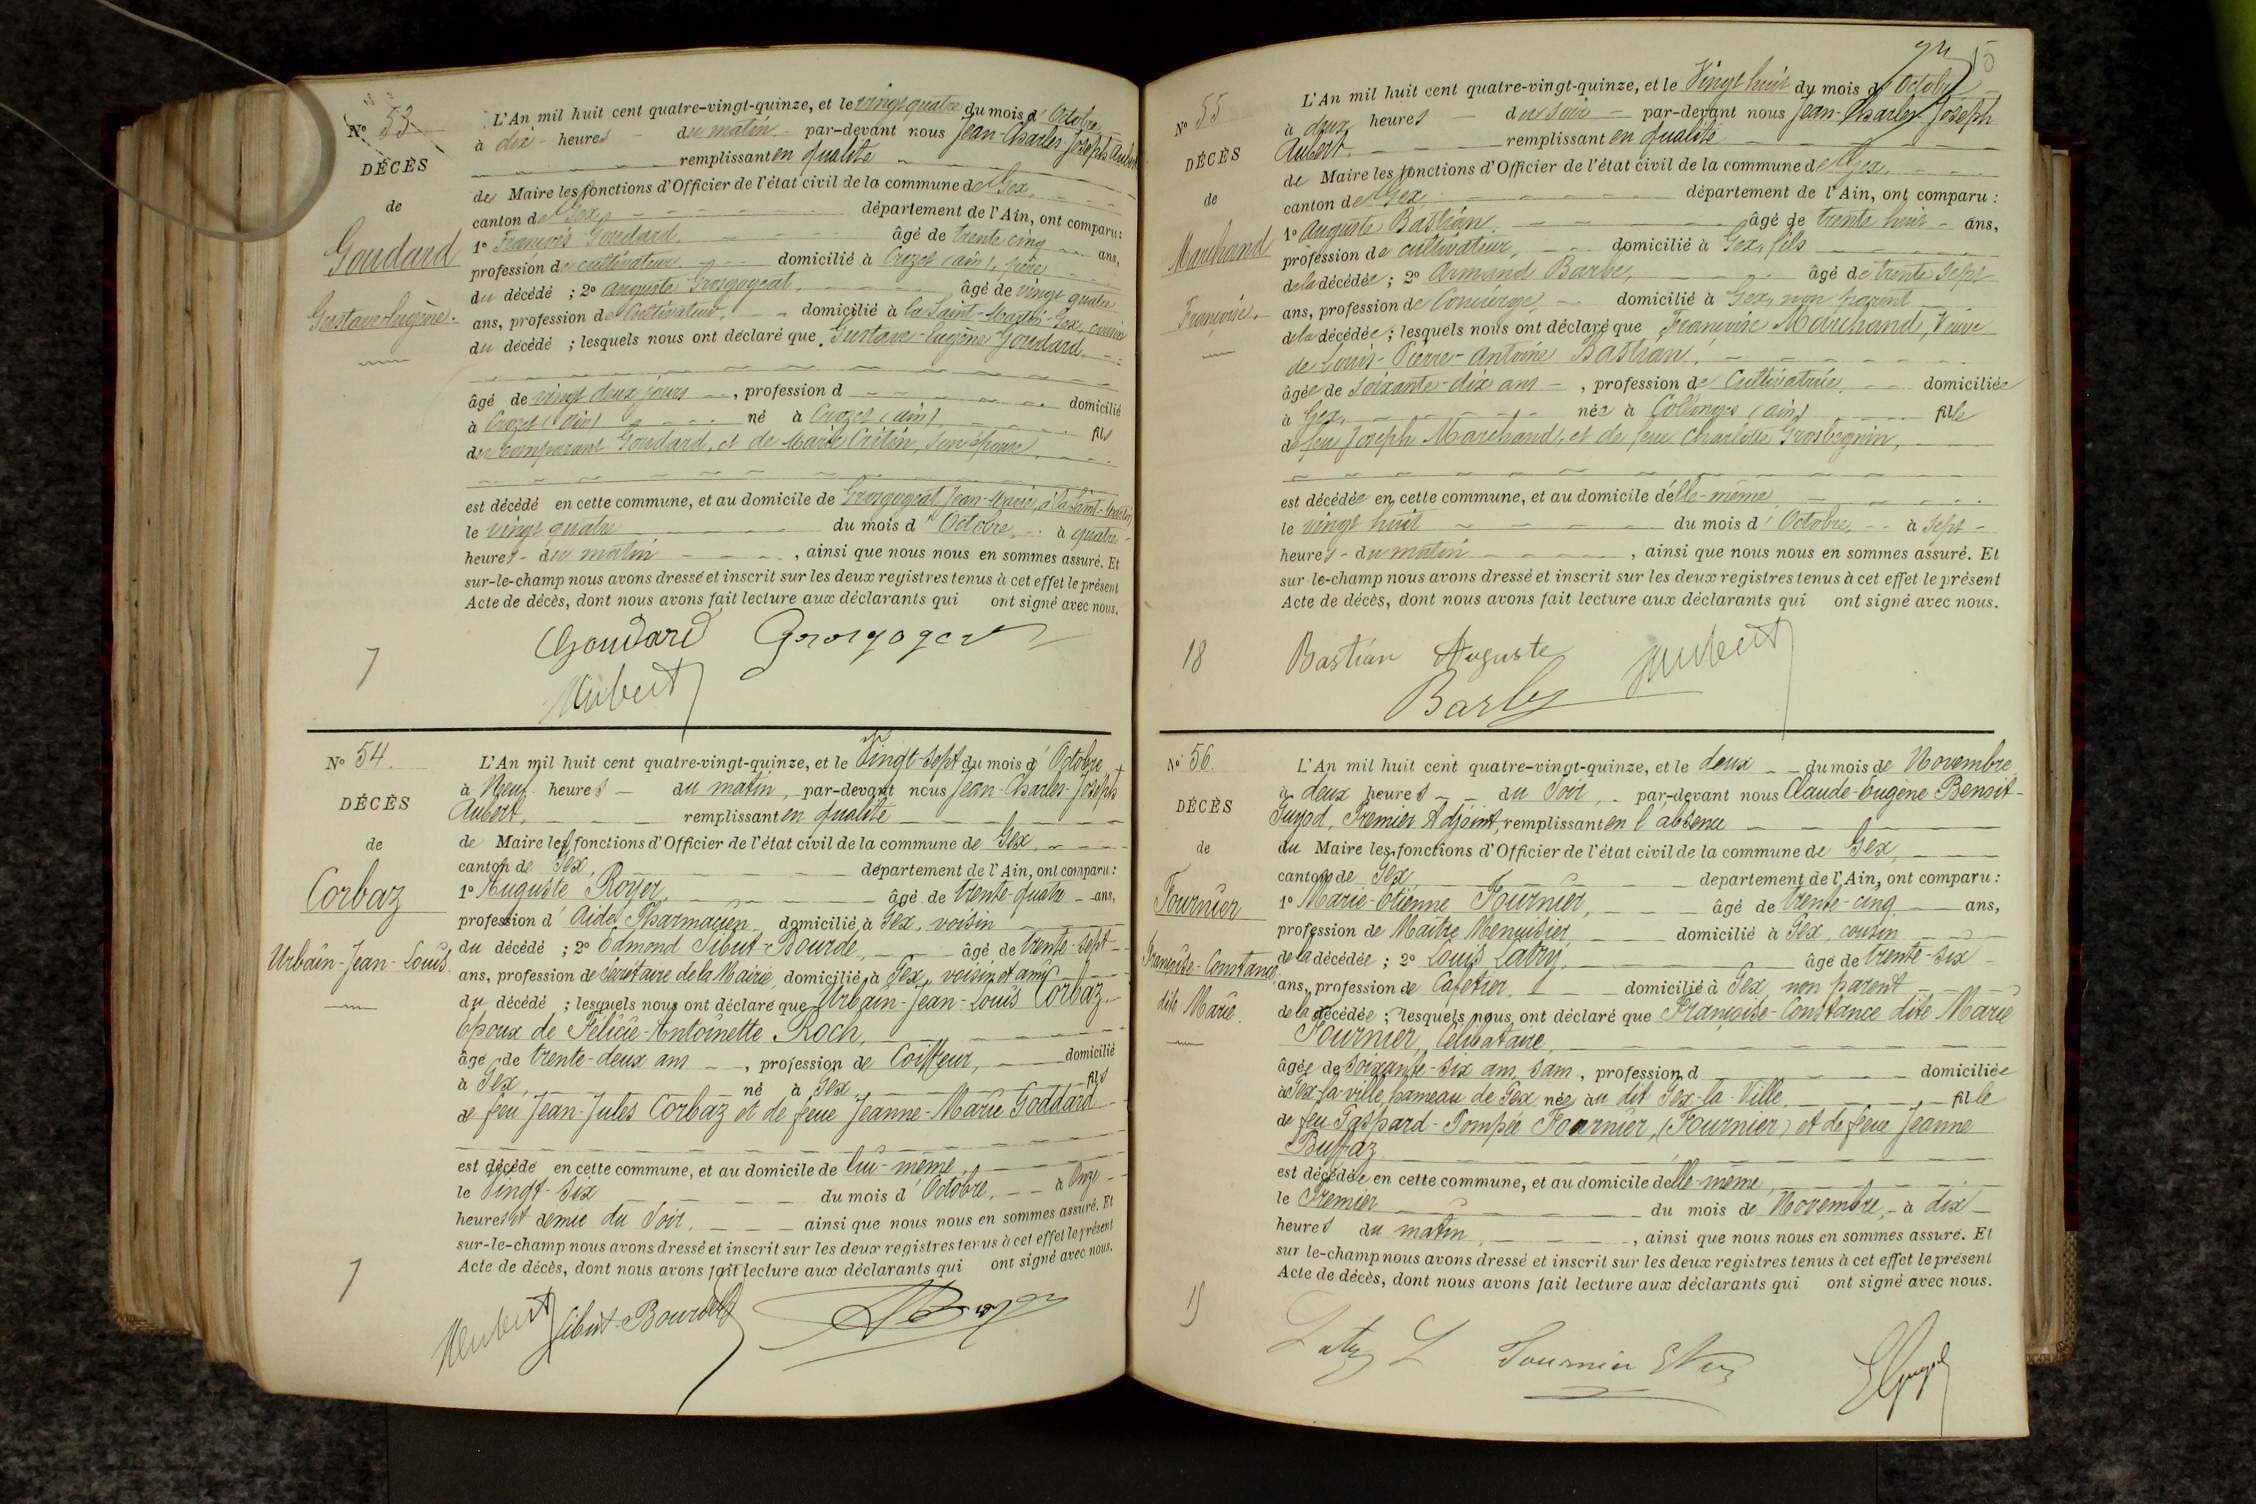 Nº 53
DÉCÈS
de
Goudard
Gustave-Eugène.
L'An mil huit cent quatre-vingt-quinze, et le vingt quatre du mois d'Octobre
à dix heures du matin par-devant nous Jean-Charles-Joseph Aubert
remplissant en qualité
de Maire les fonctions d'Officier de l'état civil de la commune de Gex,
canton de Gex, département de l'Ain, ont comparu:
1º François Goudard, âgé de trente cinq ans,
profession de cultivateur domicilié à Crozet (ain), père
du décédé ; 2º Auguste Grosgogeat, âgé de vingt quatre
ans, profession de Cultivateur, domicilié à la Saint-Martin-Gex, cousin
du décédé ; lesquels nous ont déclaré que Gustave-Eugène Goudard
âgé de vingt deux jours, profession d domicilié
à Crozet (ain) né à Crozet (ain) fils
du comparant Goudard, et de Marie Critin, son épouse,
est décédé en cette commune, et au domicile de Grosgogeat, Jean-Marie, à la Saint-Martin
le vingt quatre du mois d'Octobre, à quatre
heures du matin, ainsi que nous nous en sommes assuré. Et
sur-le-champ nous avons dressé et inscrit sur les deux registres tenus à cet effet le présent
Acte de décès, dont nous avons fait lecture aux déclarants qui ont signé avec nous.
7
Goudard Grosgogeat
Aubert
Nº 54.
DÉCÈS
de
Corbaz
Urbain-Jean-Louis.
L'An mil huit cent quatre-vingt-quinze, et le Vingt-Sept du mois d'Octobre
à Neuf heures du matin, par-devant nous Jean-Charles-Joseph
Aubert, remplissant en qualité
de Maire les fonctions d'Officier de l'état civil de la commune de Gex,
canton de Gex, département de l'Ain, ont comparu :
1º Auguste Royer âgé de trente-quatre ans,
profession d'Aide Pharmacien domicilié à Gex, voisin
du décédé ; 2º Edmond Sibut-Bourde, âgé de trente-sept
ans, profession de Secrétaire de la Mairie, domicilié à Gex, voisin et ami
du décédé ; lesquels nous ont déclaré que Urbain-Jean-Louis Corbaz
époux de Félicie-Antoinette Roch,
âgé de trente-deux ans, profession de Coiffeur, domicilié
à Gex, né à Gex fils
de feu Jean-Jules Corbaz et de feue Jeanne-Marie Goddard
est décédé en cette commune, et au domicile de lui-même,
le Vingt-Six du mois d'Octobre, à Onze
heures et demie du Soir, ainsi que nous nous en sommes assuré. Et
sur-le-champ nous avons dressé et inscrit sur les deux registres tenus à cet effet le présent
Acte de décès, dont nous avons fait lecture aux déclarants qui ont signé avec nous.
7
Aubert Sibut-Bourde
15
Nº 55
DÉCÈS
de
Marchand
Françoise.
L'An mil huit cent quatre-vingt-quinze, et le Vingt huit du mois d'Octobre
à deux heures du soir par-devant nous Jean-Charles Joseph
Aubert, remplissant en qualité
de Maire les fonctions d'Officier de l'état civil de la commune de Gex,
canton de Gex, département de l'Ain, ont comparu :
1º Auguste Bastian, âgé de trente huit ans,
profession de cultivateur, domicilié à Gex, fils
de la décédée ; 2º Armand Barbe, âgé de trente sept
ans, profession de Concierge, domicilié à Gex, non parent
de la décédée ; lesquels nous ont déclaré que Françoise Marchand, Veuve
de Louis-Pierre-Antoine Bastian,
âgée de Soixante-dix ans, profession de Cultivatrice, domiciliée
à Gex, née à Collonges (ain) fille
de feu Joseph Marchand, et de feue Charlotte Grosbegnin,
est décédée en cette commune, et au domicile d'elle-même
le vingt huit du mois d'Octobre, à sept
heures du matin, ainsi que nous nous en sommes assuré. Et
sur-le-champ nous avons dressé et inscrit sur les deux registres tenus à cet effet le présent
Acte de décès, dont nous avons fait lecture aux déclarants qui ont signé avec nous.
18
Bastian Auguste Aubert
Barbe
Nº 56.
DÉCÈS
de
Fournier
Françoise-Constance
dite Marie.
L'An mil huit cent quatre-vingt-quinze, et le deux du mois de Novembre
à deux heures du Soir, par-devant nous Claude-Eugène Benoit-
Guyod, Premier Adjoint, remplissant en l'absence
du Maire les fonctions d'Officier de l'état civil de la commune de Gex,
canton de Gex département de l'Ain, ont comparu :
1º Marie-Etienne Fournier, âgé de trente-cinq ans,
profession de Maître Menuisier domicilié à Gex, cousin
de la décédée ; 2º Louis Latry, âgé de trente-six
ans, profession de Cafetier, domicilié à Gex, non parent
de la décédée ; lesquels nous ont déclaré que Françoise-Constance dite Marie
Fournier, Célibataire,
âgée de Soixante-Six ans, Sans, profession d domiciliée
à Gex-la-ville, hameau de Gex née au dit Gex-la-Ville, fille
de feu Gaspard-Pompée Fournier, (Fournier) et de feue Jeanne
Buffaz
est décédée en cette commune, et au domicile d'elle-même,
le Premier du mois de Novembre, à dix
heures du matin, ainsi que nous nous en sommes assuré. Et
sur le-champ nous avons dressé et inscrit sur les deux registres tenus à cet effet le présent
Acte de décès, dont nous avons fait lecture aux déclarants qui ont signé avec nous.
Latry L Fournier Etne